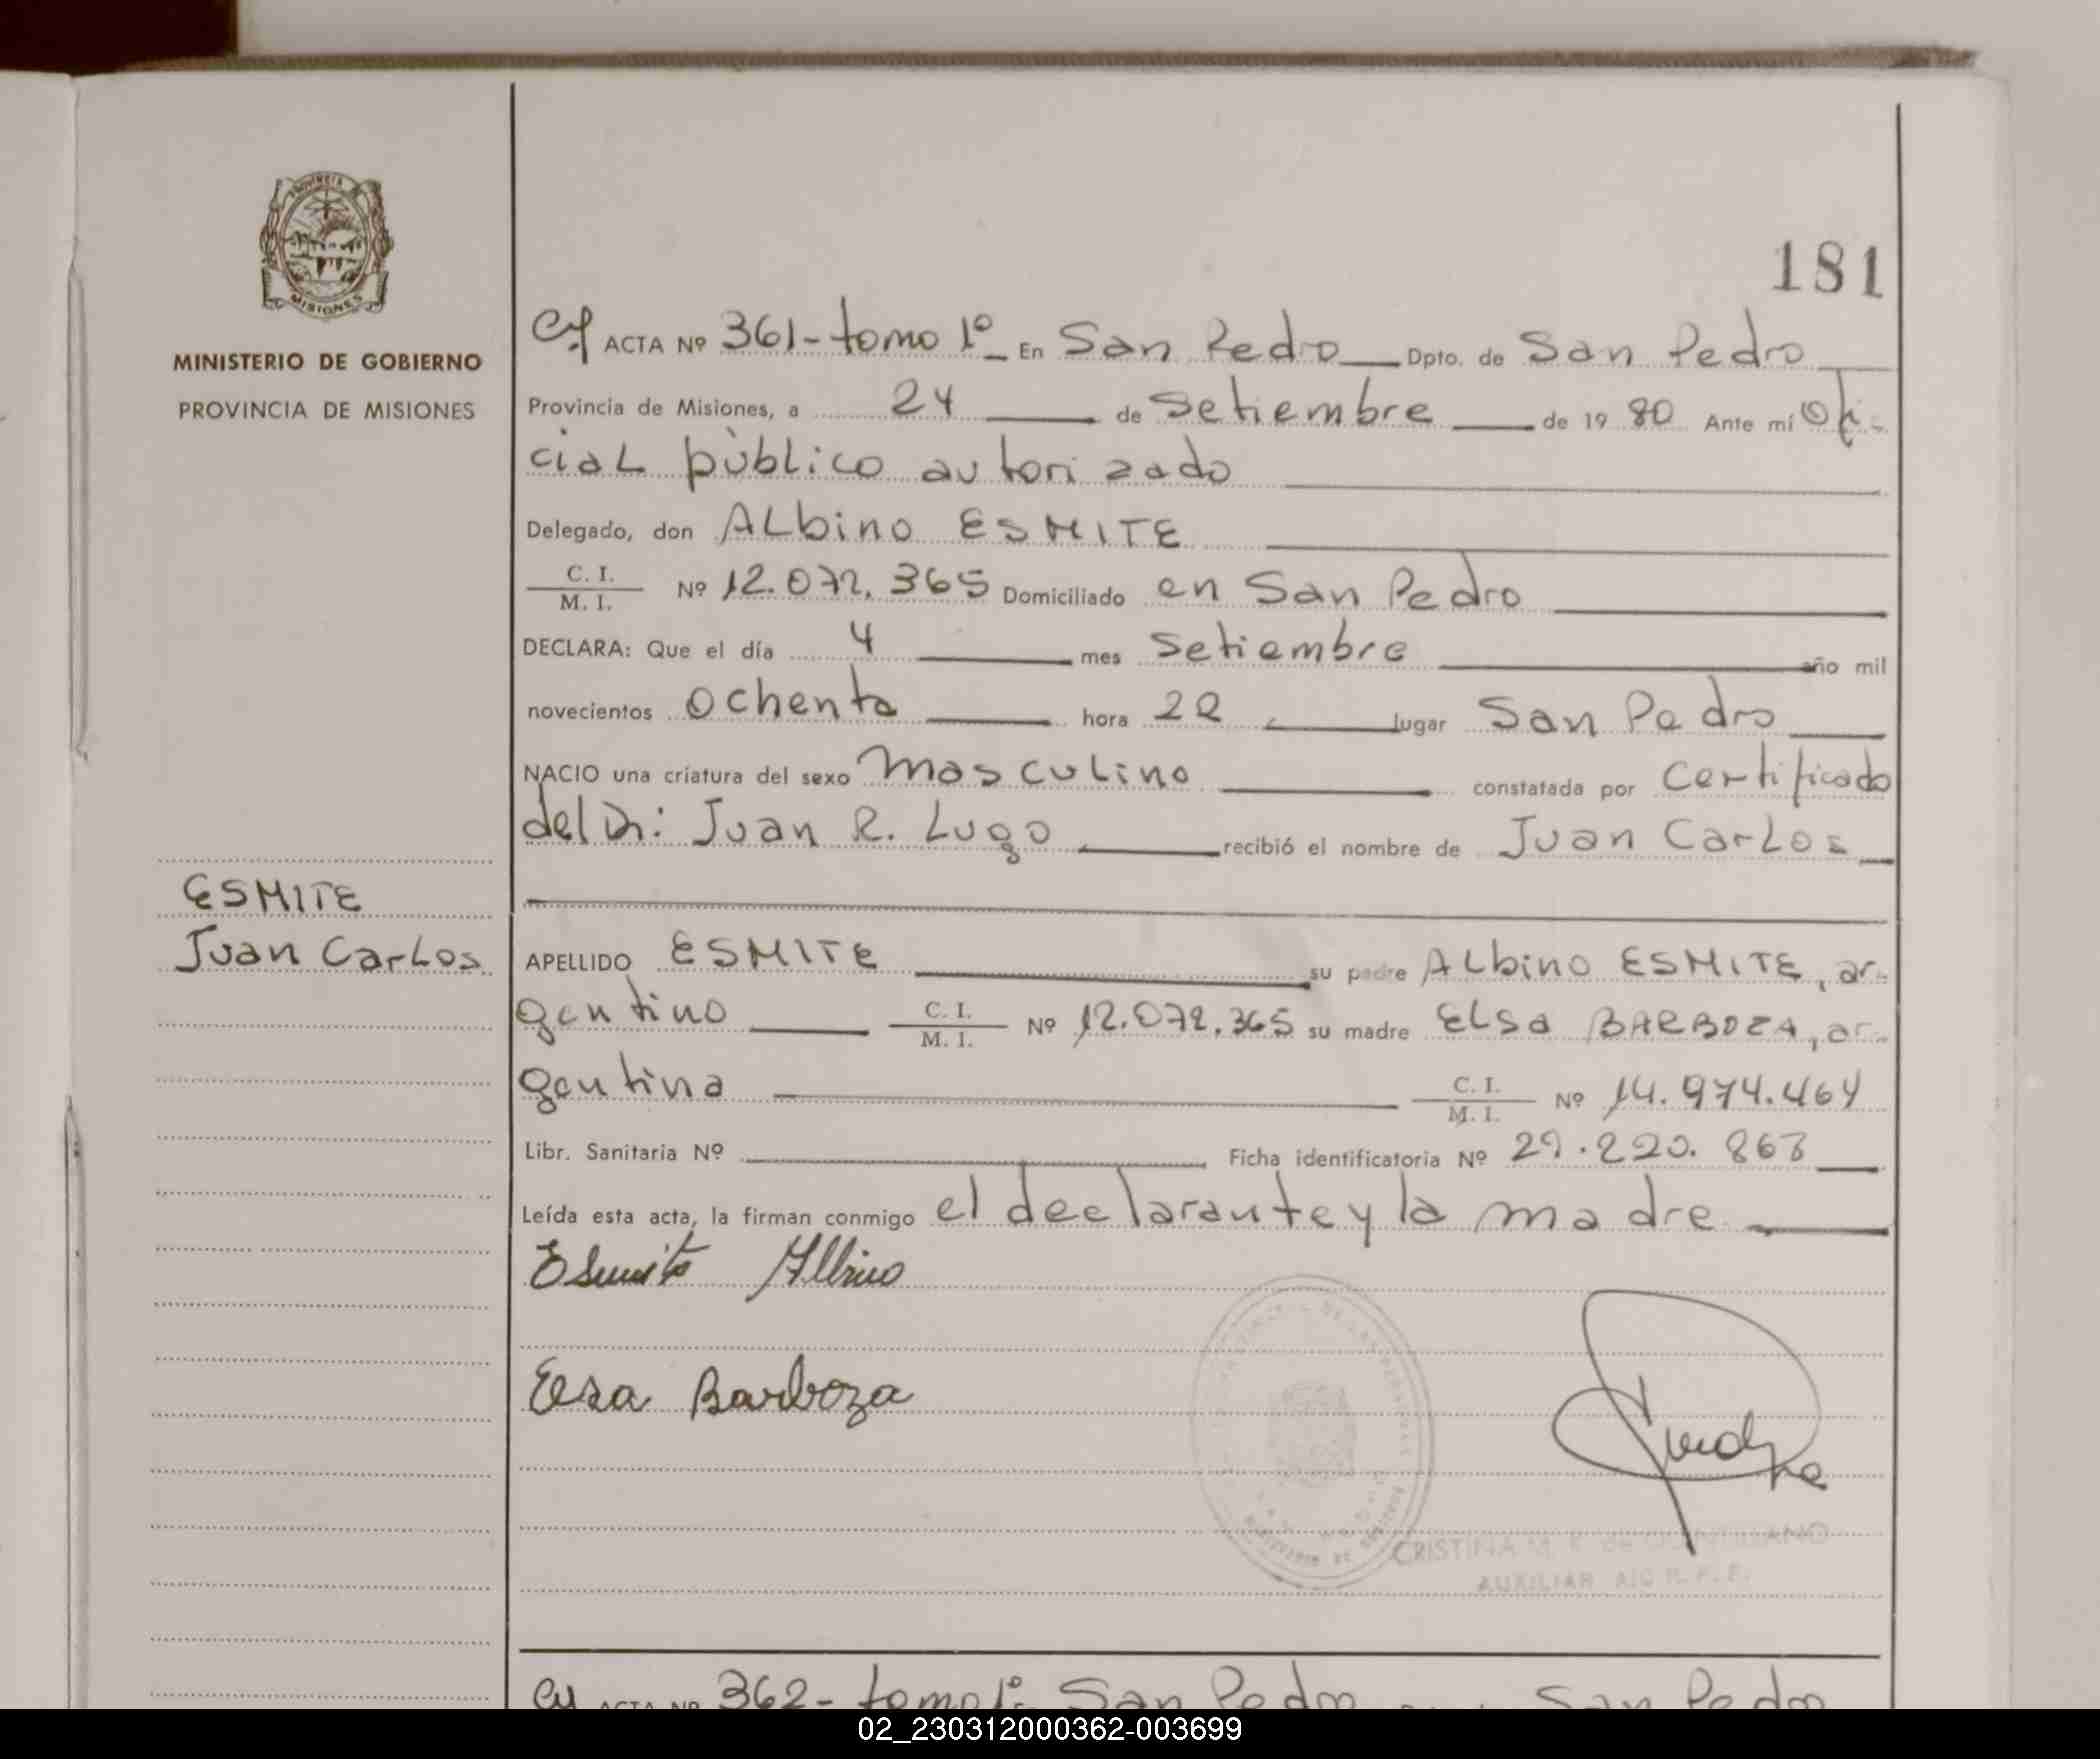 PROVINCIA
MISIONES
MINISTERIO DE GOBIERNO
PROVINCIA DE MISIONES
181
ACTA Nº 361 - tomo 1º En San Pedro Dpto. de San Pedro
Provincia de Misiones, a 24 de Setiembre de 19 80 Ante mí Ofi-
cial público autorizado
Delegado, don Albino ESMITE
C. I. / M. I. Nº 12.072.365 Domiciliado en San Pedro
DECLARA: Que el día 4 mes Setiembre año mil
novecientos ochenta hora 22 lugar San Pedro
NACIO una criatura del sexo masculino constatada por certificado
del Dr: Juan R. Lugo recibió el nombre de Juan Carlos
ESMITE
Juan Carlos
APELLIDO ESMITE su padre Albino ESMITE, ar-
gentino C. I. / M. I. Nº 12.072.365 su madre Elsa BARBOZA, ar-
gentina C. I. / M. I. Nº 14.974.464
Libr. Sanitaria Nº Ficha identificatoria Nº 29.220.863
Leída esta acta, la firman conmigo el declarante y la madre
Esmite Albino
Elsa Barboza
CRISTINA M.
AUXILIAR
ACTA Nº 362 - tomo 1º San Pedro San Pedro
02_230312000362-003699